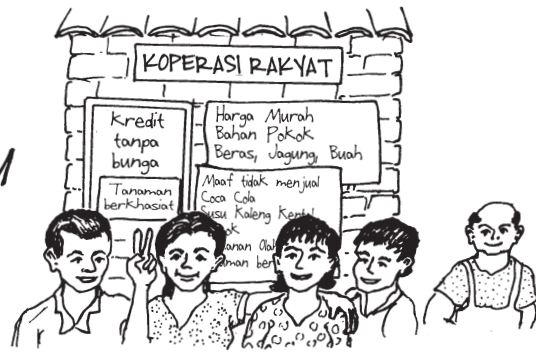 KOPERASI RAKYAT
Kredit
tanpa
bunga
Tanaman
berkhasiat
Harga Murah
Bahan Pokok
Beras, Jagung, Buah
Maaf tidak menjual
Coca Cola
Susu Kaleng Kental